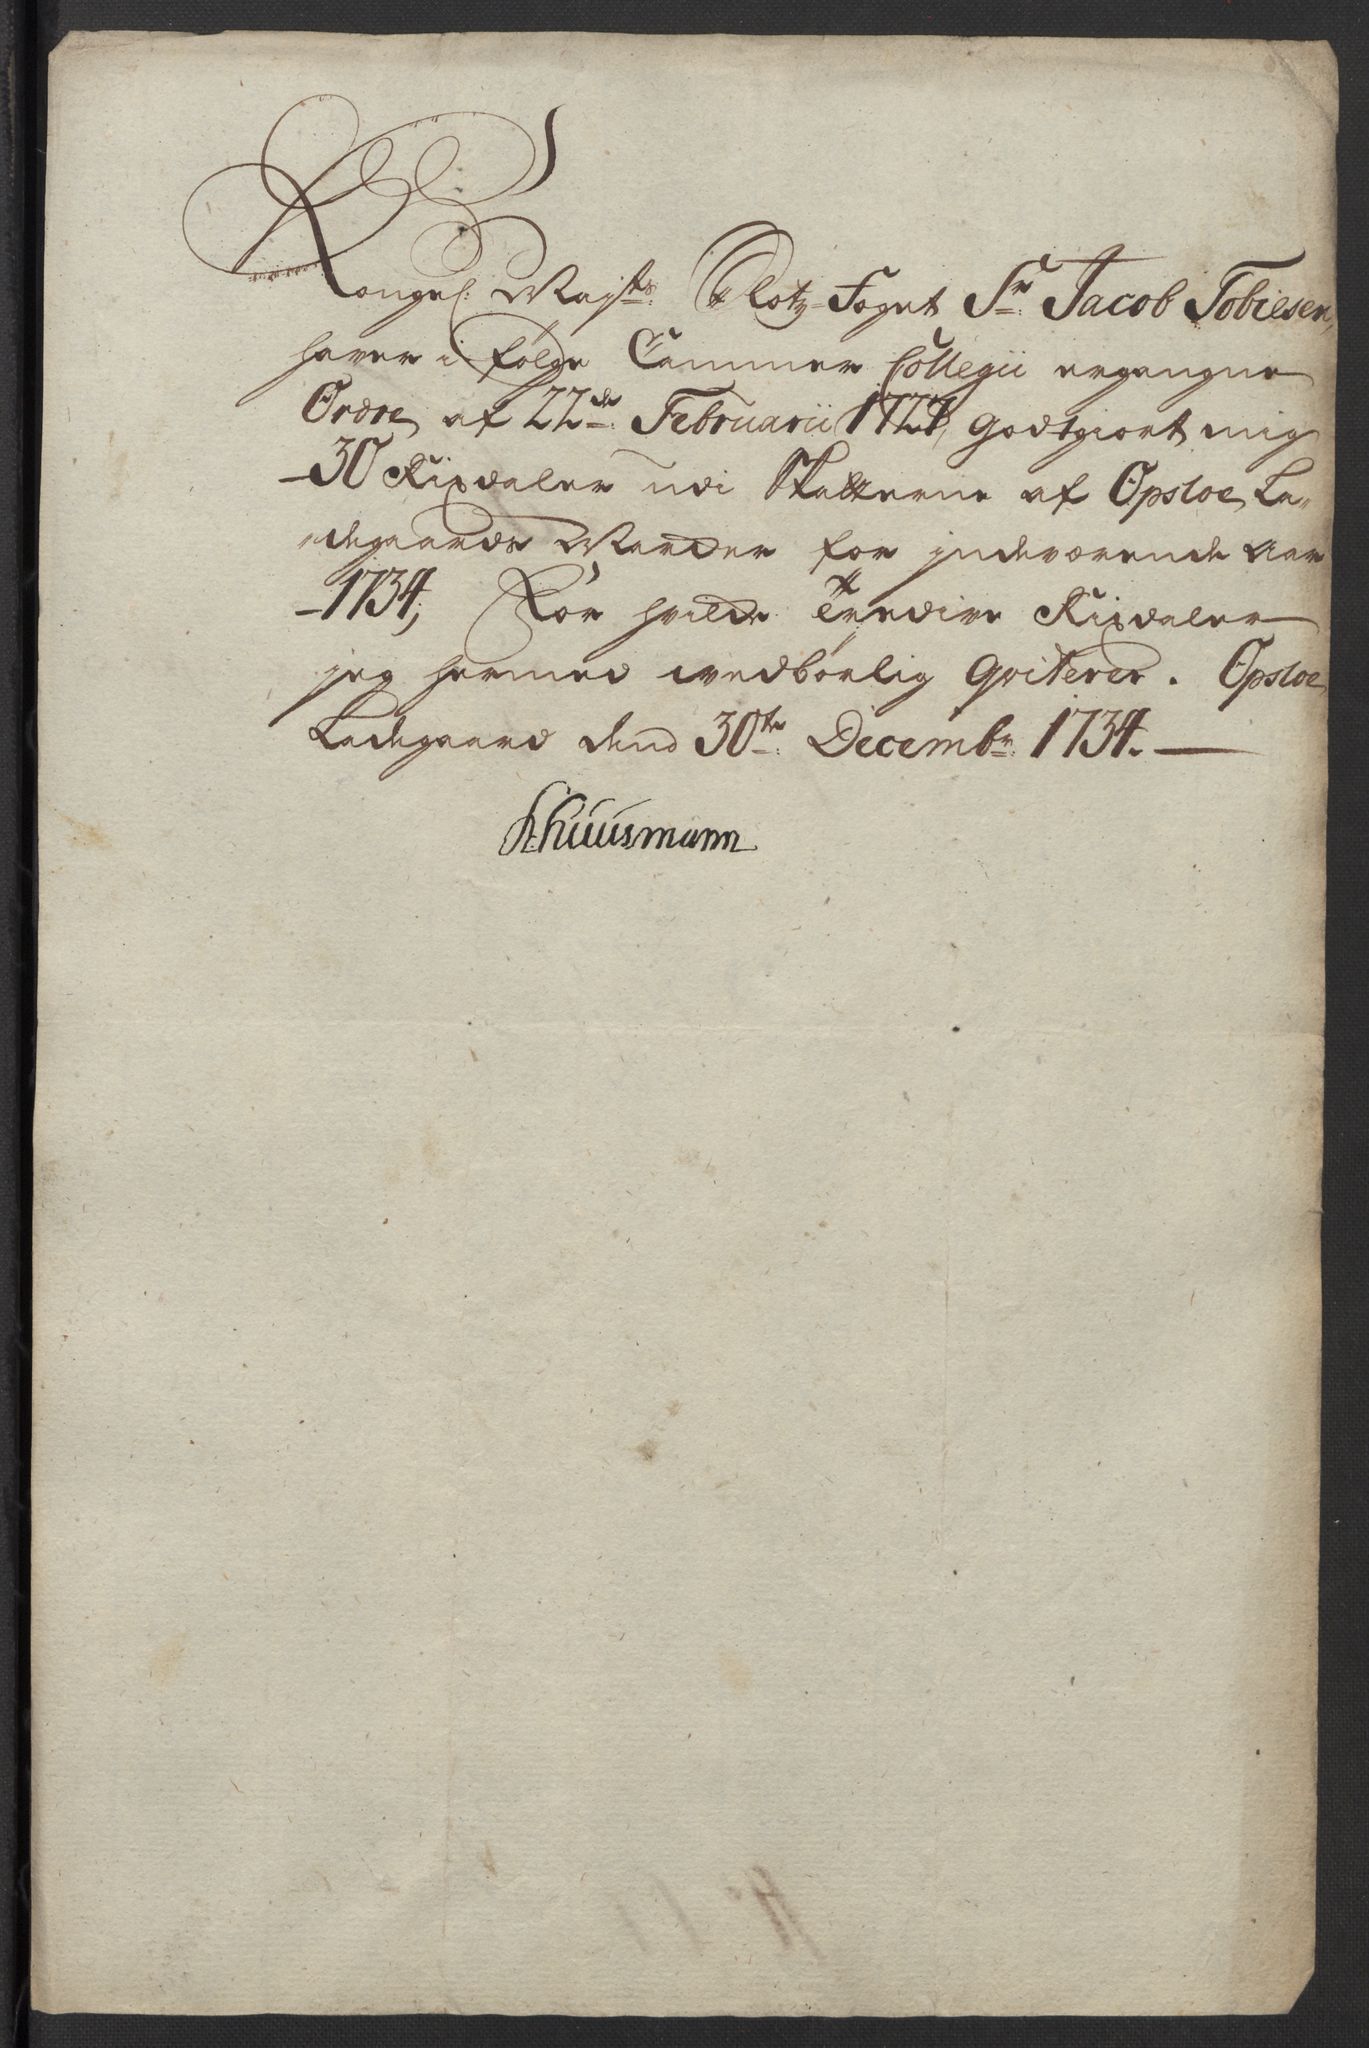 Kongel: Majsts: Slotz-Foget Sr: Jacob Tobiesen,
haver i følge Cammer Collegii ergangne
Ordre af 22de: Februarii 1727, Godtgiort mig
-30 Rixdaler udi Skatterne af Opsloe La-
degaards Marker for jndeværende Aar
-1734, For hvilke Tredive Rixdaler
jeg hermed wedbørlig Qviterer. Opsloe
Ladegaard dend 30te: Decembr: 1734.
Khuusmann